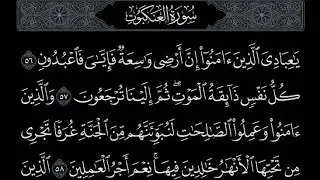 سُورَةُ العَنكَبُوتِ
يَٰعِبَادِىَ ٱلَّذِينَ ءَامَنُوٓا۟ إِنَّ أَرْضِى وَٰسِعَةٌ فَإِيَّٰىَ فَٱعْبُدُونِ ٥٦
كُلُّ نَفْسٍ ذَآئِقَةُ ٱلْمَوْتِ ۖ ثُمَّ إِلَيْنَا تُرْجَعُونَ ٥٧ وَٱلَّذِينَ
ءَامَنُوا۟ وَعَمِلُوا۟ ٱلصَّٰلِحَٰتِ لَنُبَوِّئَنَّهُم مِّنَ ٱلْجَنَّةِ غُرَفًا تَجْرِى
مِن تَحْتِهَا ٱلْأَنْهَٰرُ خَٰلِدِينَ فِيهَا ۚ نِعْمَ أَجْرُ ٱلْعَٰمِلِينَ ٥٨ ٱلَّذِينَ